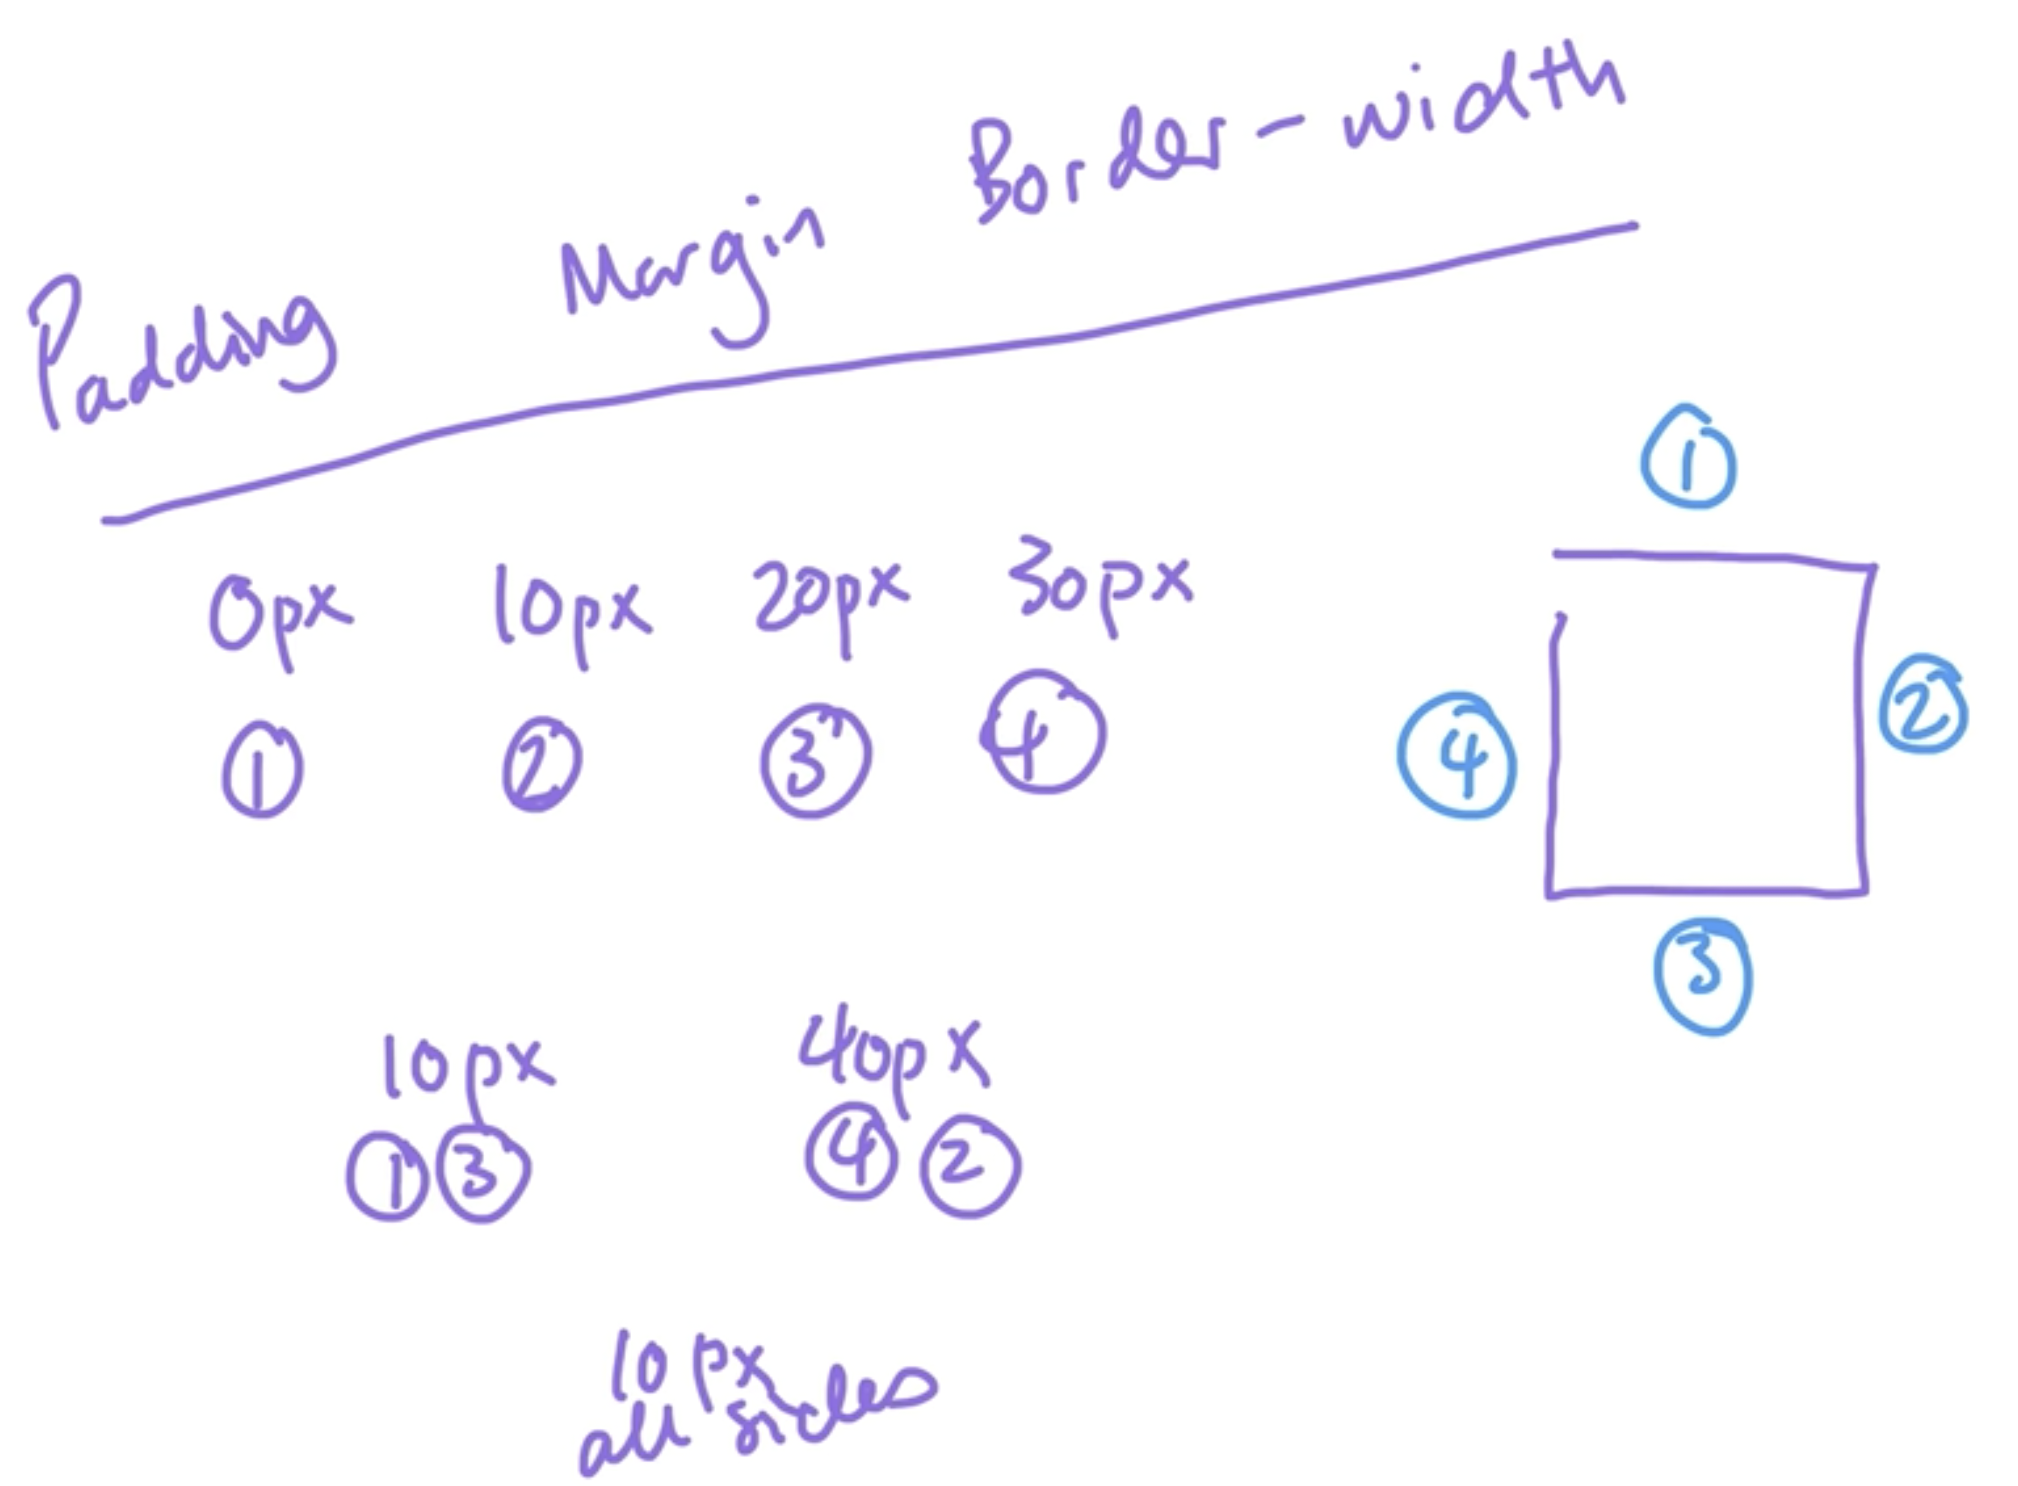 Padding Margin Border-width
0px 10px 20px 30px
① ② ③ ④
①
④ ②
③
10px 40px
① ③ ④ ②
10px
all sides